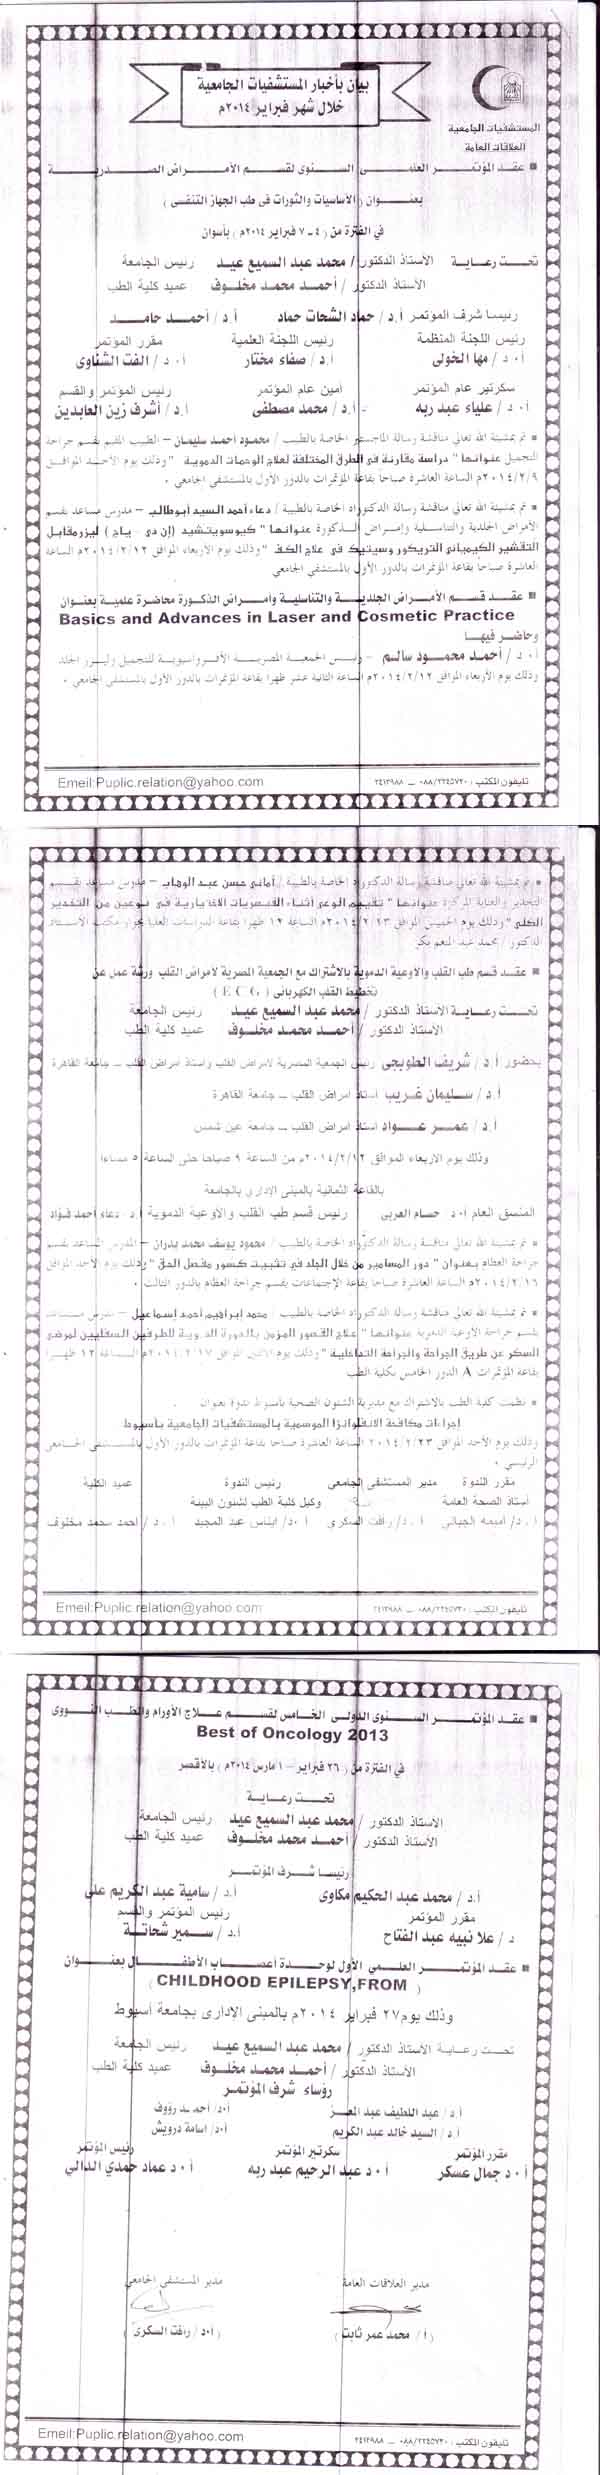 بيان بأخبار المستشفيات الجامعية
خلال شهر فبراير ٢٠١٤م
المستشفيات الجامعية
العلاقات العامة
عقد المؤتمر العلمى السنوى لقسم الأمراض الصدرية
بعنوان ( الأساسيات والثورات فى طب الجهاز التنفسى )
في الفترة من ( ٤ - ٧ فبراير ٢٠١٤م ) بأسوان
تحت رعاية الأستاذ الدكتور / محمد عبد السميع عيد رئيس الجامعة
الأستاذ الدكتور / أحمد محمد مخلوف عميد كلية الطب
رئيسا شرف المؤتمر أ.د / حماد الشحات حماد أ.د / أحمد حامد
رئيس اللجنة المنظمة رئيس اللجنة العلمية مقرر المؤتمر
أ.د / مها الخولى أ.د / صفاء مختار أ.د / الفت الشناوى
سكرتير عام المؤتمر أمين عام المؤتمر رئيس المؤتمر والقسم
أ.د / علياء عبد ربه أ.د / محمد مصطفى أ.د / أشرف زين العابدين
* تم بمشيئة الله تعالى مناقشة رسالة الماجستير الخاصة بالطبيب / محمود أحمد سليمان – الطبيب المقيم بقسم جراحة
التجميل عنوانها " دراسة مقارنة في الطرق المختلفة لعلاج الوحمات الدموية " وذلك يوم الأحد الموافق
٢٠١٤/٢/٩م الساعة العاشرة صباحا بقاعة المؤتمرات بالدور الأول بالمستشفي الجامعي .
* تم بمشيئة الله تعالى مناقشة رسالة الدكتوراه الخاصة بالطبيبة / دعاء أحمد السيد أبوطالب – مدرس مساعد بقسم
الأمراض الجلدية والتناسلية وأمراض الذكورة عنوانها " كيوسويتشيد (إن دى - ياج ) ليزر مقابل
التقشير الكيميائى التريكلور وسيتيك في علاج الكلف " وذلك يوم الأربعاء الموافق ٢٠١٤/٢/١٢م الساعة
العاشرة صباحا بقاعة المؤتمرات بالدور الأول بالمستشفي الجامعي
عقد قسم الأمراض الجلدية والتناسلية وأمراض الذكورة محاضرة علمية بعنوان
Basics and Advances in Laser and Cosmetic Practice
وحاضر فيها
أ.د / أحمد محمود سالم – رئيس الجمعية المصرية الأفروأسيوية للتجميل وليزر الجلد
وذلك يوم الأربعاء الموافق ٢٠١٤/٢/١٢م الساعة الثانية عشر ظهرا بقاعة المؤتمرات بالدور الأول بالمستشفي الجامعي .
تليفون المكتب : ٠٨٨/٢٣٤٥٧٣٠ – ٢٤١٣٩٨٨ Emeil:Puplic.relation@yahoo.com
* تم بمشيئة الله تعالى مناقشة رسالة الدكتوراه الخاصة بالطبيبة / أماني حسن عبد الوهاب – مدرس مساعد بقسم
التخدير والعناية المركزة عنوانها " تقييم الوعي أثناء القيصريات الاختيارية في نوعين من التخدير
الكلي " وذلك يوم الخميس الموافق ٢٠١٤/٢/٢٣م الساعة ١٢ ظهرا بقاعة الدراسات العليا بجوار مكتب الأستاذ
الدكتور / محمد عبد المنعم بكر
عقد قسم طب القلب والأوعية الدموية بالاشتراك مع الجمعية المصرية لأمراض القلب ورشة عمل عن
تخطيط القلب الكهربائى ( ECG )
تحت رعاية الأستاذ الدكتور / محمد عبد السميع عيد رئيس الجامعة
الأستاذ الدكتور / أحمد محمد مخلوف عميد كلية الطب
بحضور أ.د / شريف الطوبجى رئيس الجمعية المصرية لأمراض القلب وأستاذ أمراض القلب – جامعة القاهرة
أ.د / سليمان غريب أستاذ أمراض القلب – جامعة القاهرة
أ.د / عمر عواد أستاذ أمراض القلب – جامعة عين شمس
وذلك يوم الأربعاء الموافق ٢٠١٤/٢/١٢م من الساعة ٩ صباحا حتى الساعة ٥ مساءا
بالقاعة الثمانية بالمبنى الإدارى بالجامعة
المنسق العام أ.د حسام العربى رئيس قسم طب القلب والأوعية الدموية أ.د. دعاء أحمد فؤاد
* تم بمشيئة الله تعالى مناقشة رسالة الدكتوراه الخاصة بالطبيب / محمود يوسف محمد بدران – المدرس المساعد بقسم
جراحة العظام بعنوان " دور المسامير من خلال الجلد في تثبيت كسور مفصل الحق " وذلك يوم الأحد الموافق
٢٠١٤/٢/١٦م الساعة العاشرة صباحا بقاعة الإجتماعات بقسم جراحة العظام بالدور الثالث .
* تم بمشيئة الله تعالى مناقشة رسالة الدكتوراه الخاصة بالطبيب / محمد إبراهيم أحمد إسماعيل – مدرس مساعد
بقسم جراحة الأوعية الدموية عنوانها " علاج القصور المزمن بالدورة الدموية للطرفين السفليين لمرضى
السكر عن طريق الجراحة والجراحة التداخلية " وذلك يوم الاثنين الموافق ٢٠١٤/٢/١٧م الساعة ١٢ ظهرا
بقاعة المؤتمرات A الدور الخامس بكلية الطب
* نظمت كلية الطب بالاشتراك مع مديرية الشئون الصحية بأسيوط ندوة بعنوان
إجراءات مكافحة الانفلوانزا الموسمية بالمستشفيات الجامعية بأسيوط
وذلك يوم الأحد الموافق ٢٠١٤/٢/٢٣ الساعة العاشرة صباحا بقاعة المؤتمرات بالدور الأول بالمستشفى الجامعى
الرئيسي .
مقرر الندوة مدير المستشفى الجامعى رئيس الندوة عميد الكلية
أستاذ الصحة العامة وكيل كلية الطب لشئون البيئة
أ.د / أميمه الجبالى أ.د / رأفت السكرى أ.د / ايناس عبد المجيد أ.د / أحمد محمد مخلوف
تليفون المكتب : ٠٨٨/٢٣٤٥٧٣٠ – ٢٤١٣٩٨٨ Emeil:Puplic.relation@yahoo.com
عقد المؤتمر السنوى الدولى الخامس لقسم علاج الأورام والطب النووى
Best of Oncology 2013
في الفترة من ( ٢٦ فبراير – ١ مارس ٢٠١٤م ) بالأقصر
تحت رعاية
الأستاذ الدكتور / محمد عبد السميع عيد رئيس الجامعة
الأستاذ الدكتور / أحمد محمد مخلوف عميد كلية الطب
رئيسا شرف المؤتمر
أ.د / محمد عبد الحكيم مكاوى أ.د / سامية عبد الكريم على
مقرر المؤتمر رئيس المؤتمر والقسم
د / علا نبيه عبد الفتاح أ.د / سمير شحاتة
عقد المؤتمر العلمي الأول لوحدة أعصاب الأطفال بعنوان
( CHILDHOOD EPILEPSY,FROM )
وذلك يوم ٢٧ فبراير ٢٠١٤ م بالمبنى الإدارى بجامعة أسيوط
تحت رعاية الأستاذ الدكتور / محمد عبد السميع عيد رئيس الجامعة
الأستاذ الدكتور / أحمد محمد مخلوف عميد كلية الطب
رؤساء شرف المؤتمر
أ.د / عبد اللطيف عبد المعز أ.د/ أحمد رؤوف
أ.د / السيد خالد عبد الكريم أ.د/ أسامة درويش
مقرر المؤتمر سكرتير المؤتمر رئيس المؤتمر
أ.د جمال عسكر أ.د عبد الرحيم عبد ربه أ.د عماد حمدي الدالي
مدير العلاقات العامة مدير المستشفى الجامعى
( أ / محمد عمر ثابت ) ( أ.د / رأفت السكرى )
تليفون المكتب : ٠٨٨/٢٣٤٥٧٣٠ – ٢٤١٣٩٨٨ Emeil:Puplic.relation@yahoo.com